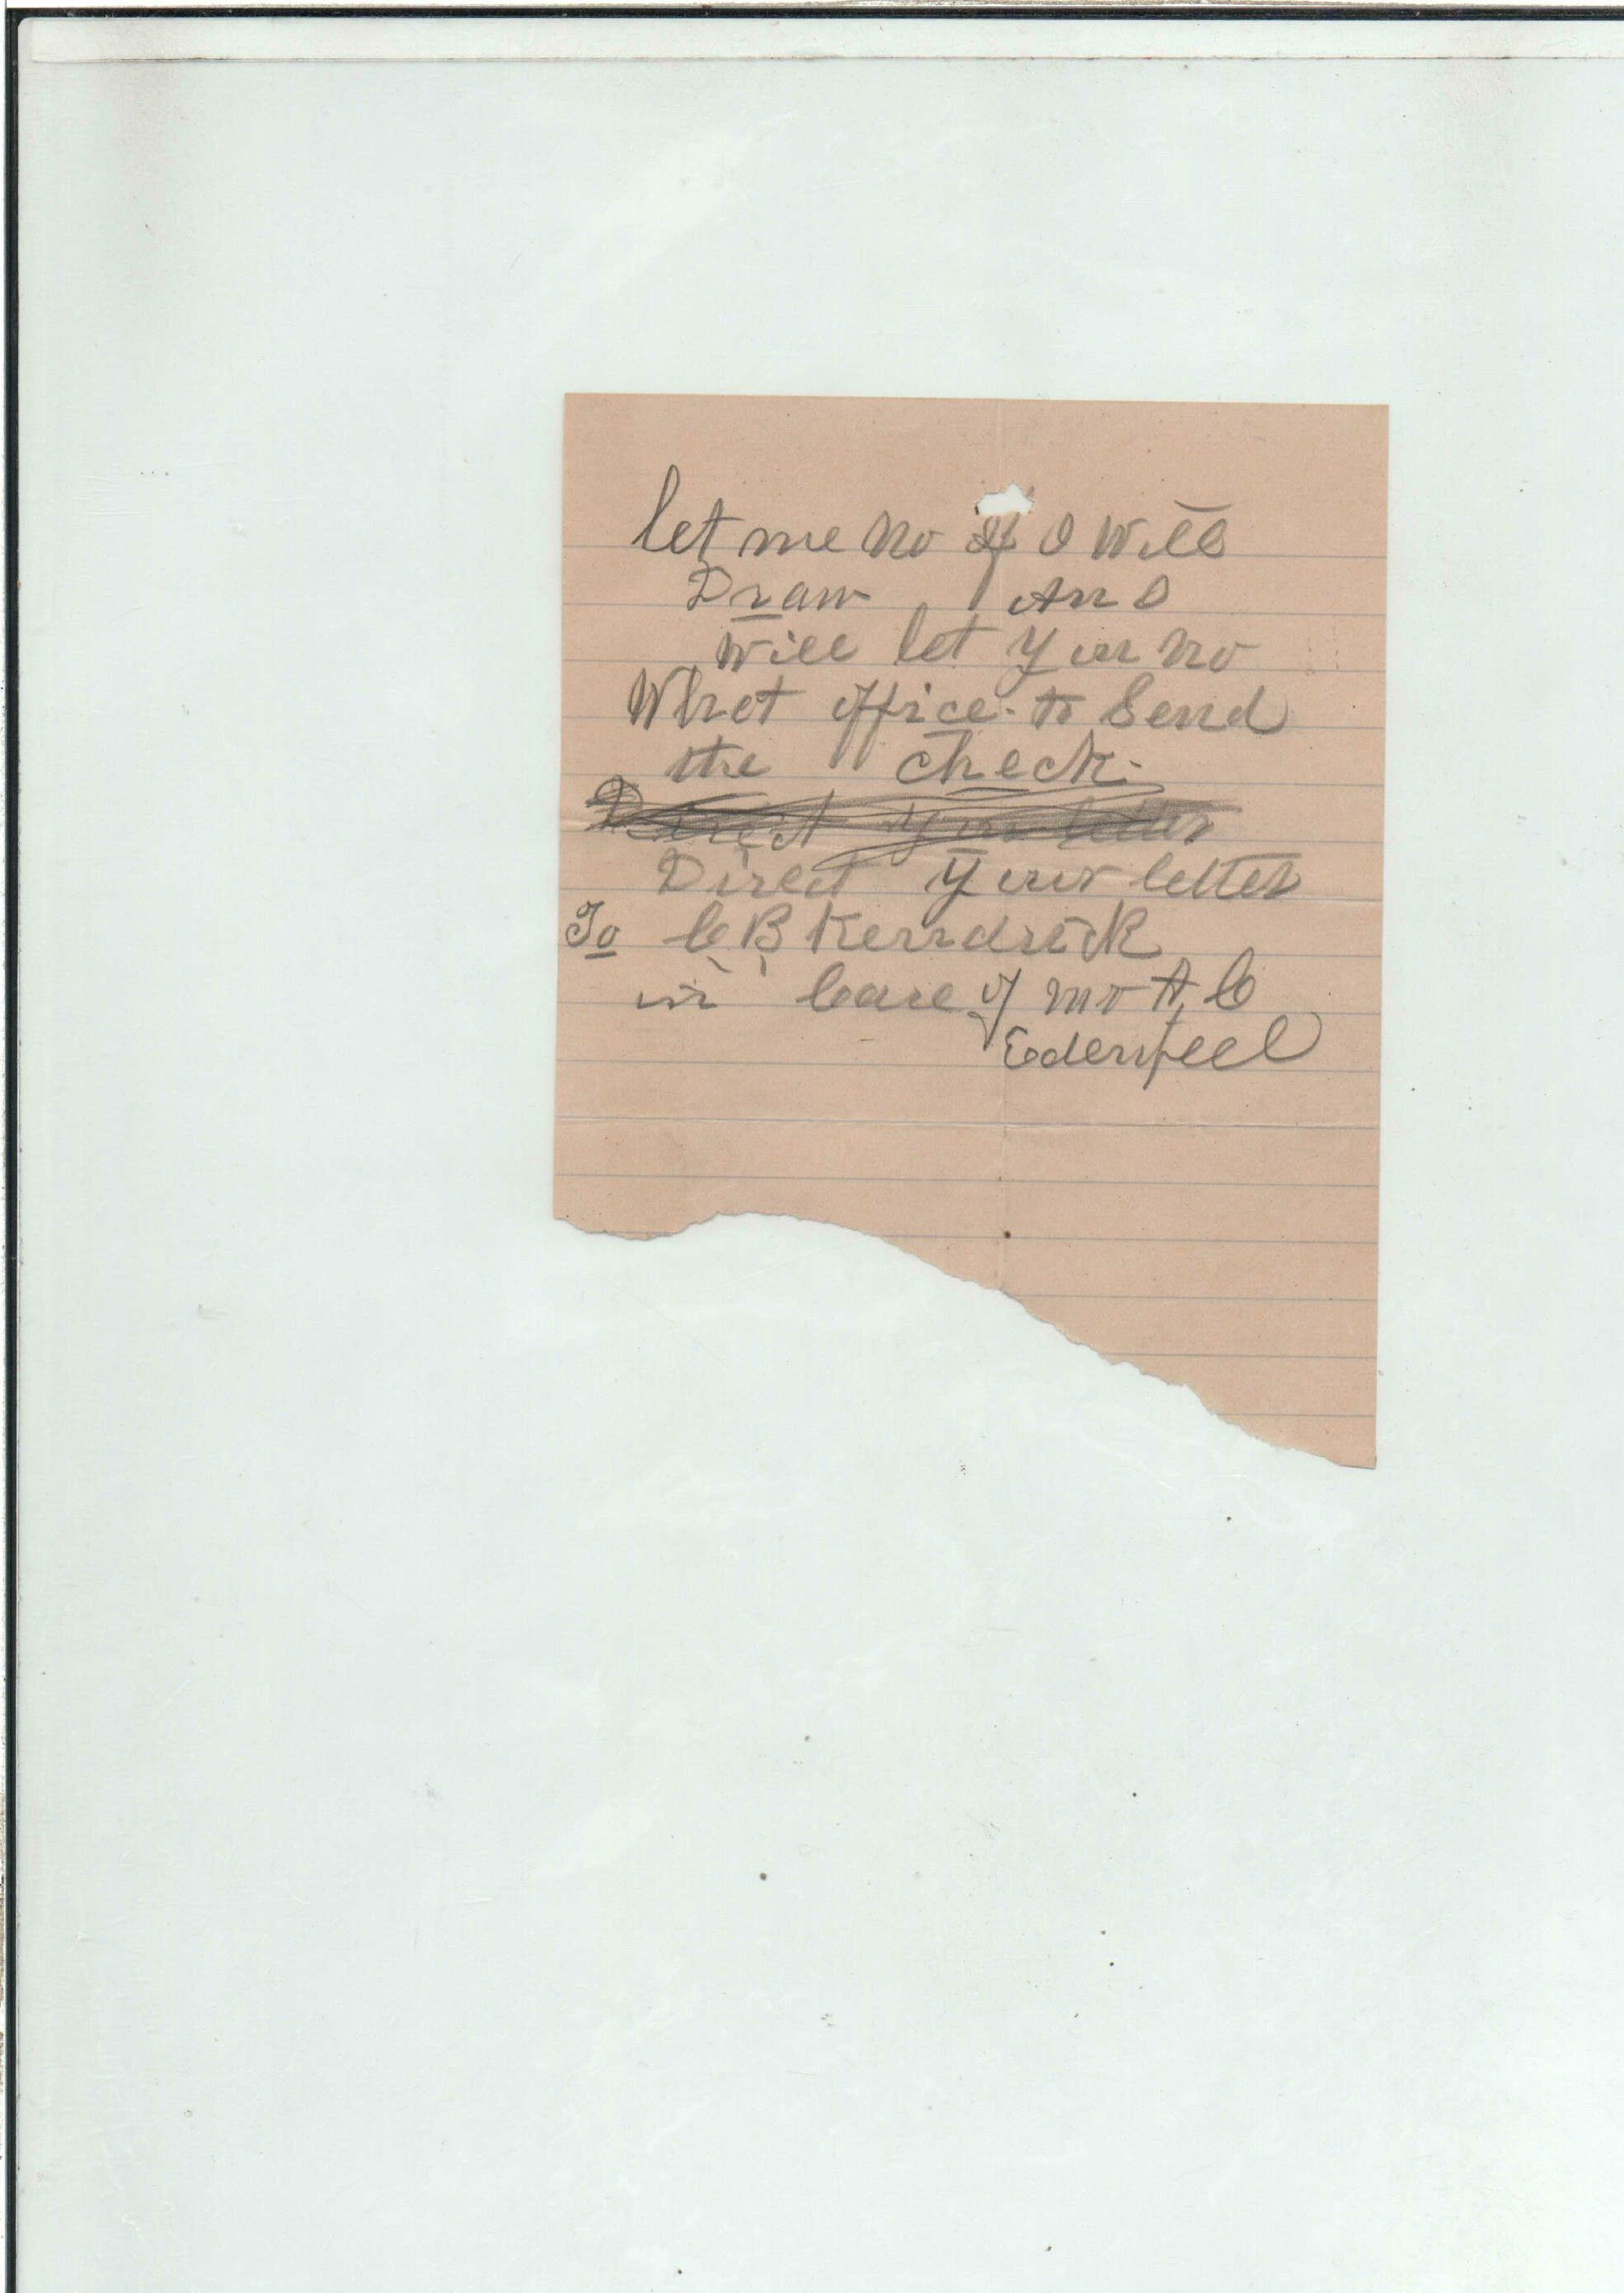 let me no If I Will
Draw And
will let you no
What office to Send
the check
Direct your letter
Direct your letter
To C B Kendrick
in Care of mr A, C
Edenfeel